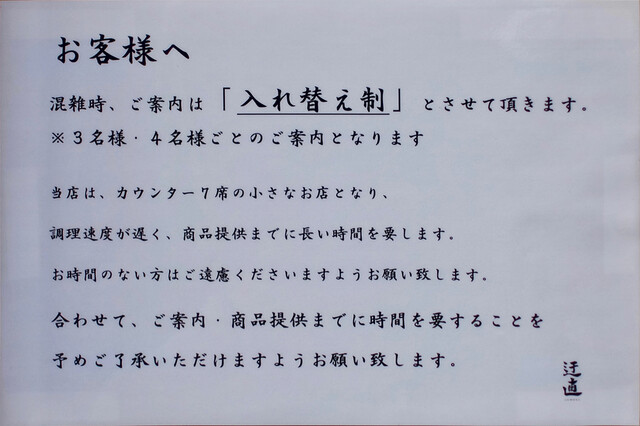 お客様へ
混雑時、ご案内は「入れ替え制」とさせて頂きます。
※３名様・４名様ごとのご案内となります
当店は、カウンター７席の小さなお店となり、
調理速度が遅く、商品提供までに長い時間を要します。
お時間のない方はご遠慮くださいますようお願い致します。
合わせて、ご案内・商品提供までに時間を要することを
予めご了承いただけますようお願い致します。
迂直